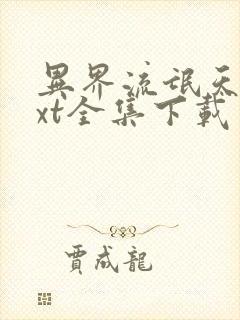 異界流氓天
xt全集下載
賈成龍